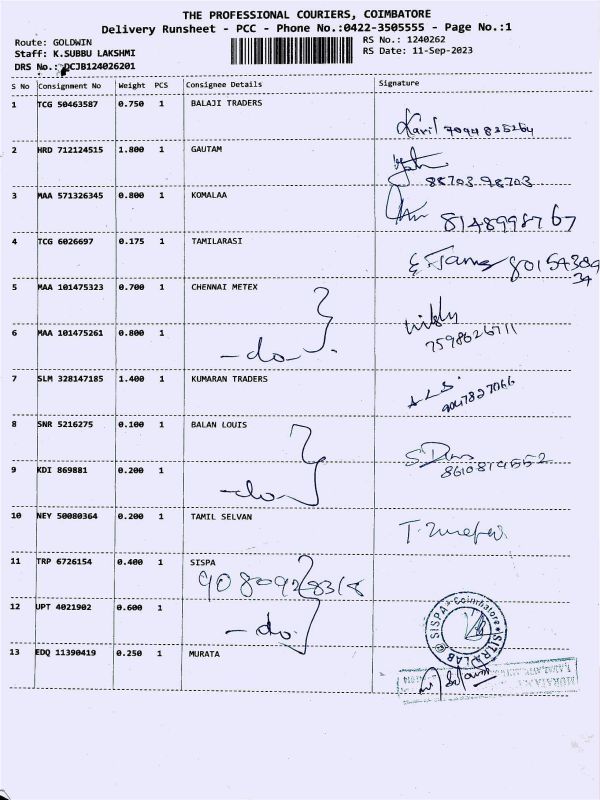 THE PROFESSIONAL COURIERS, COIMBATORE
Delivery Runsheet - PCC - Phone No.:0422-3505555 - Page No.:1
Route: GOLDWIN RS No.: 1240262
Staff: K.SUBBU LAKSHMI RS Date: 11-Sep-2023
DRS No.: DCJB124026201
S No Consignment No Weight PCS Consignee Details Signature
1 TCG 50463587 0.750 1 BALAJI TRADERS
2 HRD 712124515 1.800 1 GAUTAM
88703 98703
3 MAA 571326345 0.800 1 KOMALAA
8148998767
4 TCG 6026697 0.175 1 TAMILARASI
5 MAA 101475323 0.700 1 CHENNAI METEX
7598626711
6 MAA 101475261 0.800 1
-do-
7 SLM 328147185 1.400 1 KUMARAN TRADERS
8 SNR 5216275 0.100 1 BALAN LOUIS
9 KDI 869881 0.200 1
-do-
10 NEY 50080364 0.200 1 TAMIL SELVAN
11 TRP 6726154 0.400 1 SISPA
9080928318
12 UPT 4021902 0.600 1
-do-
SISPA Coimbatore SITRA LAB
13 EDQ 11390419 0.250 1 MURATA